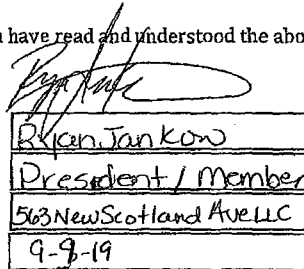 have read and understood the abo
Ryan Jankow
President / Member
563 New Scotland Ave LLC
9-9-19